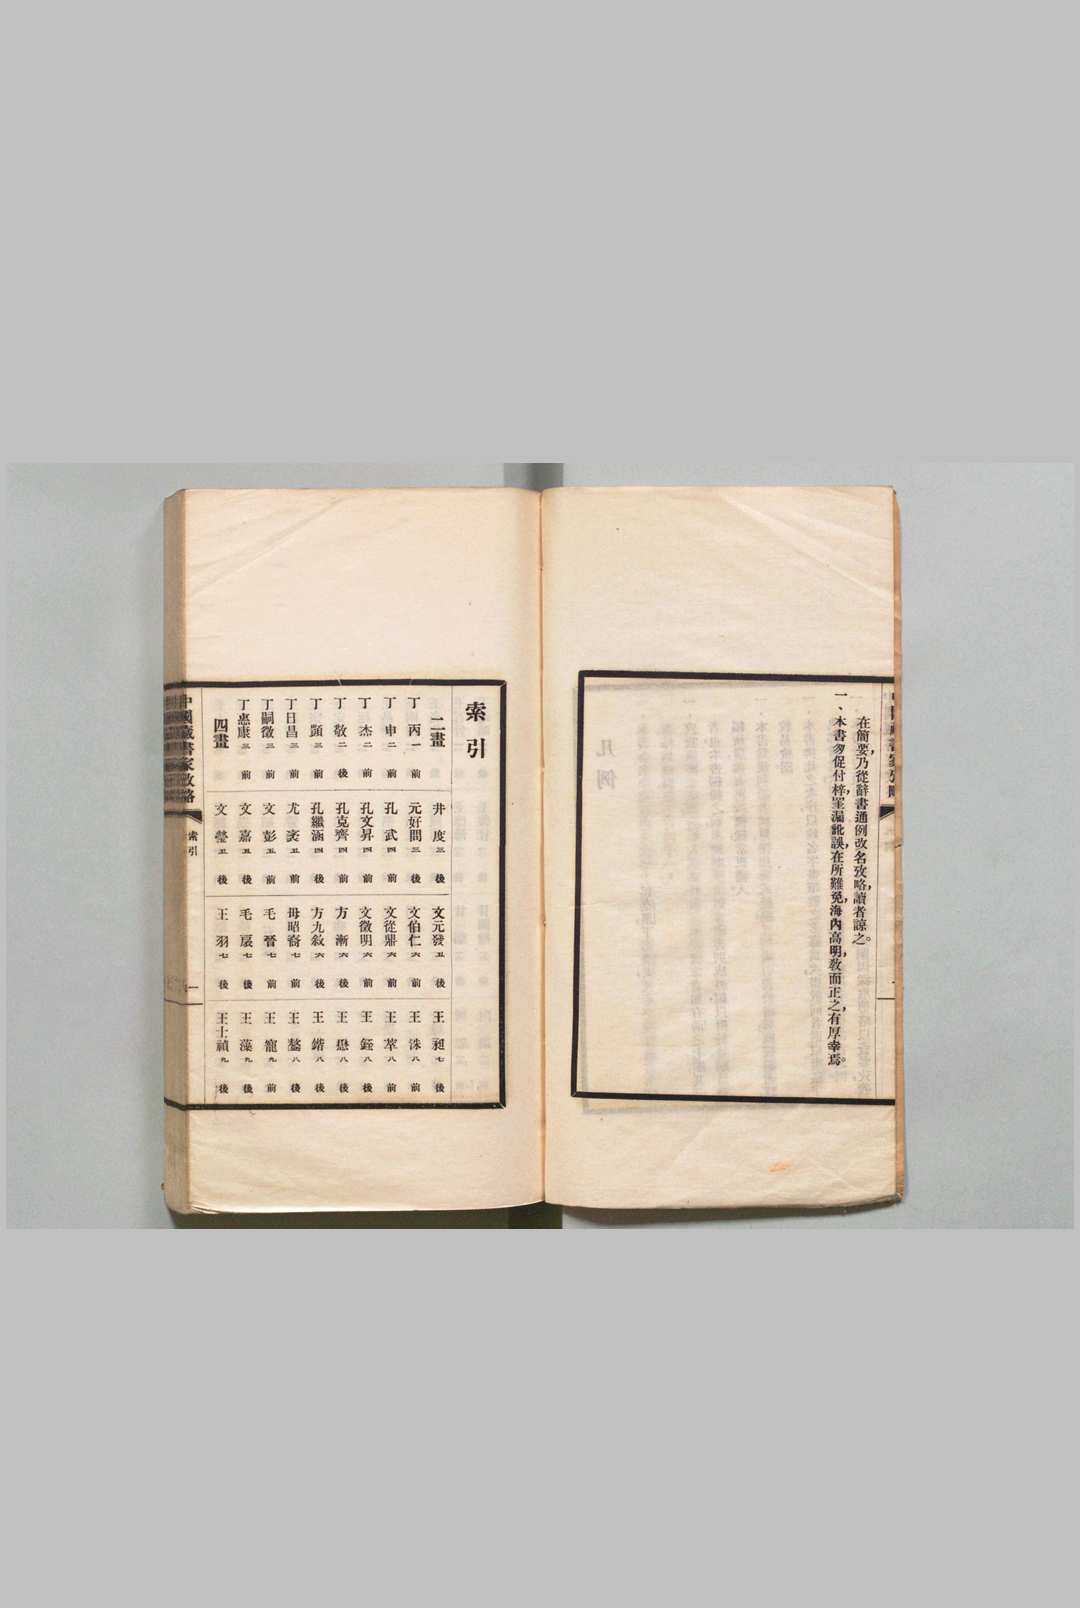 在簡要，乃從辭書通例改名攷略，讀者諒之。
一、本書匆促付梓，罣漏訛誤，在所難免，海內高明，敎而正之，有厚幸焉。
索引
二畫
丁丙 一 前
丁申 二 前
丁杰 二 前
丁敬 二 後
丁顗 三 前
丁日昌 三 前
丁嗣徵 三 前
丁惠康 三 前
四畫
井度 三 後
元好問 三 後
孔武 四 前
孔文昇 四 前
孔克齊 四 前
孔繼涵 四 後
尤袤 五 前
文彭 五 前
文嘉 五 後
文瑩 五 後
文元發 五 後
文伯仁 六 前
文從鼎 六 前
文徵明 六 前
方漸 六 後
方九敍 六 後
毋昭裔 七 前
毛晉 七 前
毛扆 七 後
王羽 七 後
王昶 七 後
王洙 八 前
王莘 八 前
王銍 八 前
王懋 八 後
王鍇 八 後
王鏊 八 後
王寵 九 前
王藻 九 後
王士禎 九 後
中國藏書家攷略
索引
一